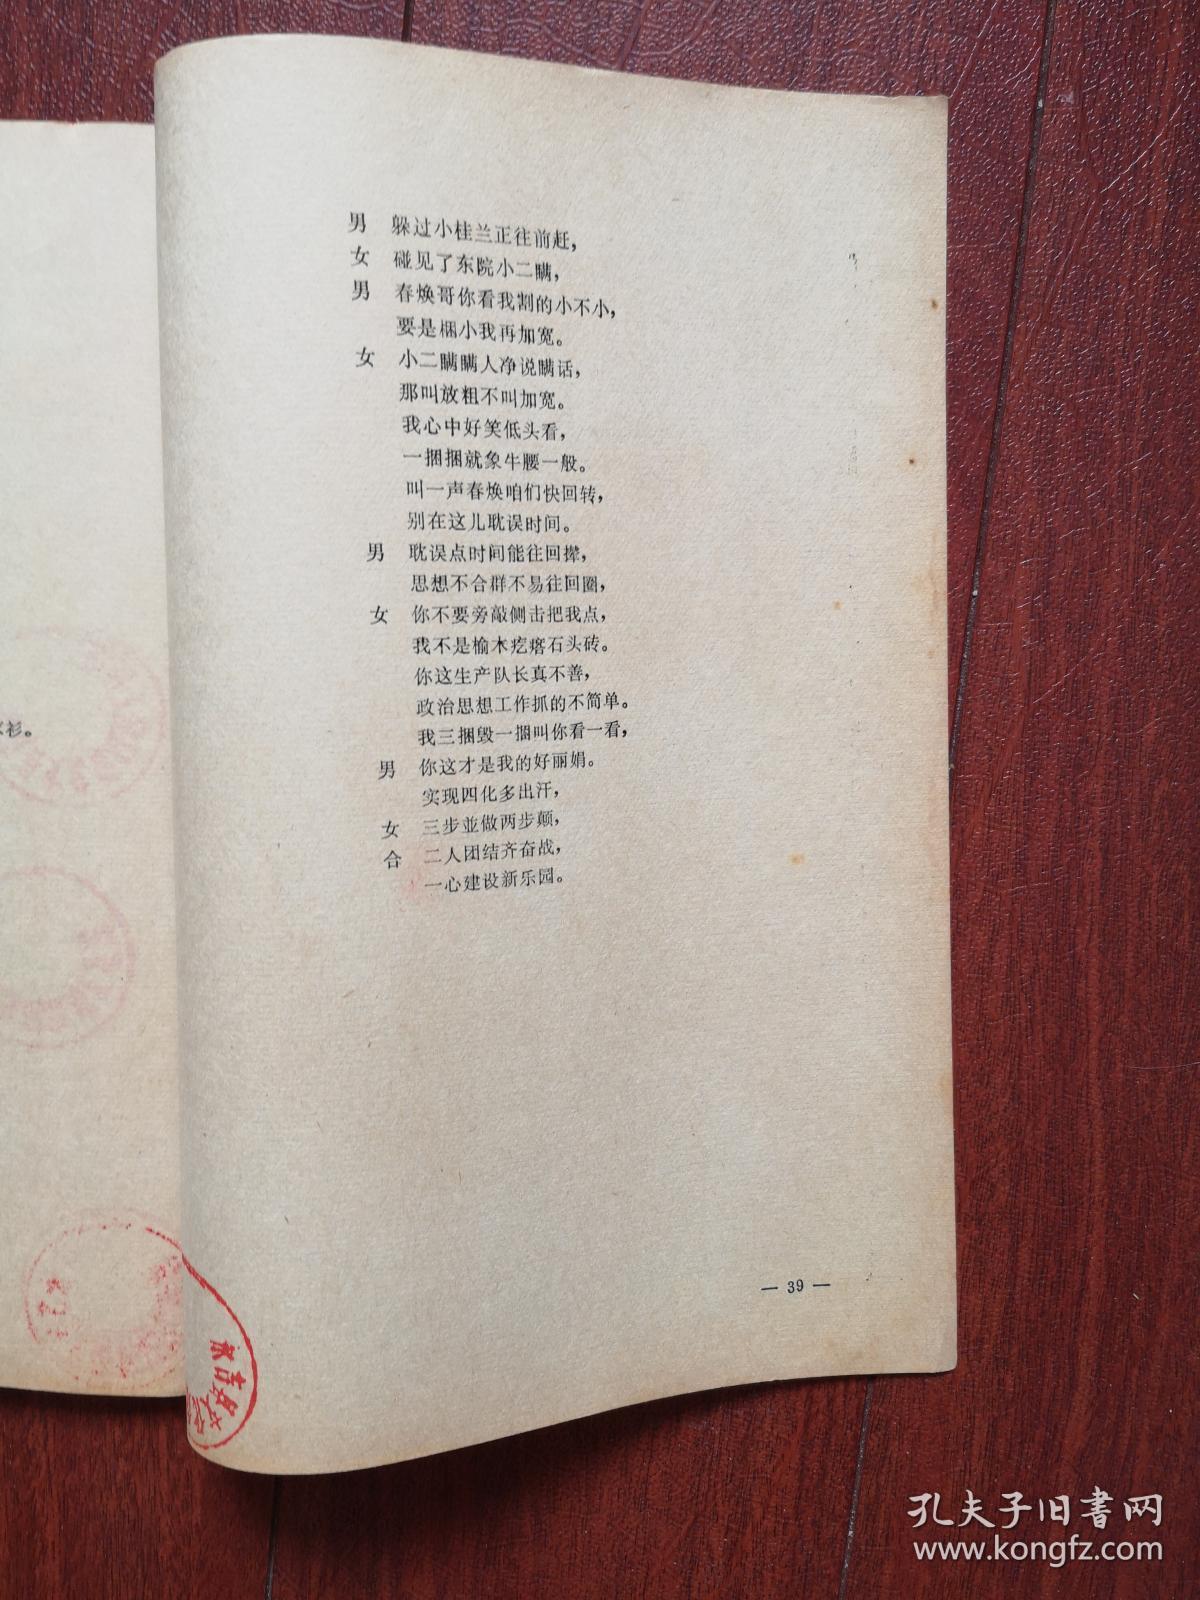 男 躲过小桂兰正往前赶，
女 碰见了东院小二瞒，
男 春焕哥你看我割的小不小，
要是梱小我再加宽。
女 小二瞒瞒人净说瞒话，
那叫放粗不叫加宽。
我心中好笑低头看，
一捆捆就象牛腰一般。
叫一声春焕咱们快回转，
别在这儿耽误时间。
男 耽误点时间能往回撵，
思想不合群不易往回圈，
女 你不要旁敲侧击把我点，
我不是榆木疙瘩石头砖。
你这生产队长真不善，
政治思想工作抓的不简单。
我三捆毁一捆叫你看一看，
男 你这才是我的好丽娟。
实现四化多出汗，
女 三步並做两步颠，
合 二人团结齐奋战，
一心建设新乐园。
— 39 —
衫。
永吉县文
孔夫子旧書网
www.kongfz.com